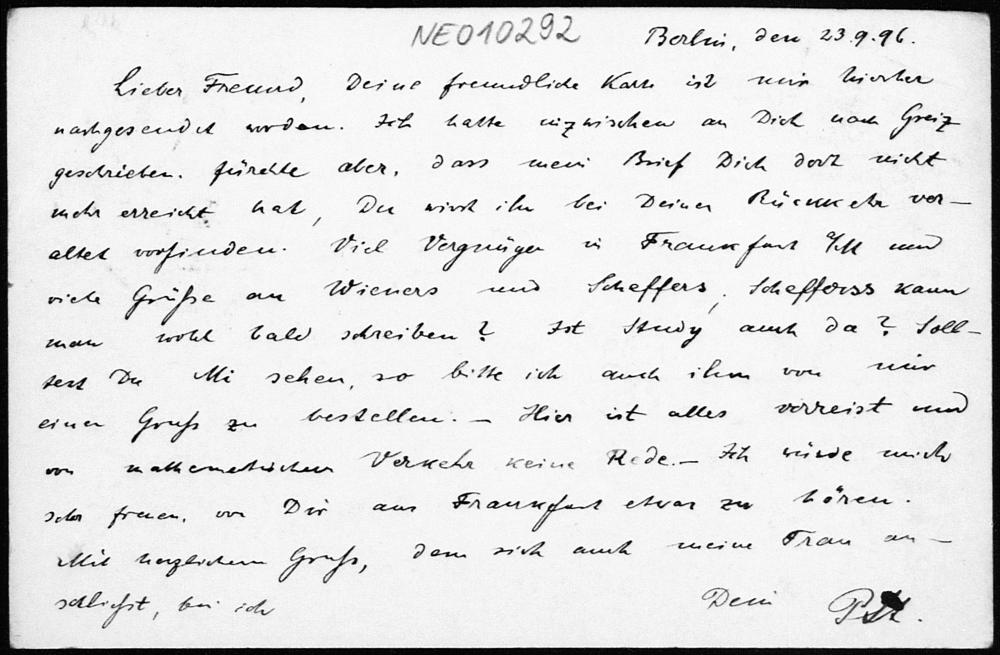 NE010292
Berlin, den 23.9.96.
Lieber Freund, Deine freundliche Karte ist mir hierher
nachgesendet worden. Ich hatte inzwischen an Dich nach Greiz
geschrieben. fürchte aber, dass mein Brief Dich dort nicht
mehr erreicht hat, Du wirst ihn bei Deiner Rückkehr ver-
altet vorfinden. Viel Vergnügen in Frankfurt a/M und
viele Grüße an Wieners und Scheffers, Schefferss kann
man wohl bald schreiben? Ist Study auch da? Soll-
test Du sehen, so bitte ich auch ihm von mir
einen Gruß zu bestellen. – Hier ist alles verreist und
von mathematischem Verkehr keine Rede. – Ich würde mich
sehr freuen, von Dir aus Frankfurt etwas zu hören.
Mit herzlichem Gruß, dem sich auch meine Frau an-
schließt, bin ich
Dein